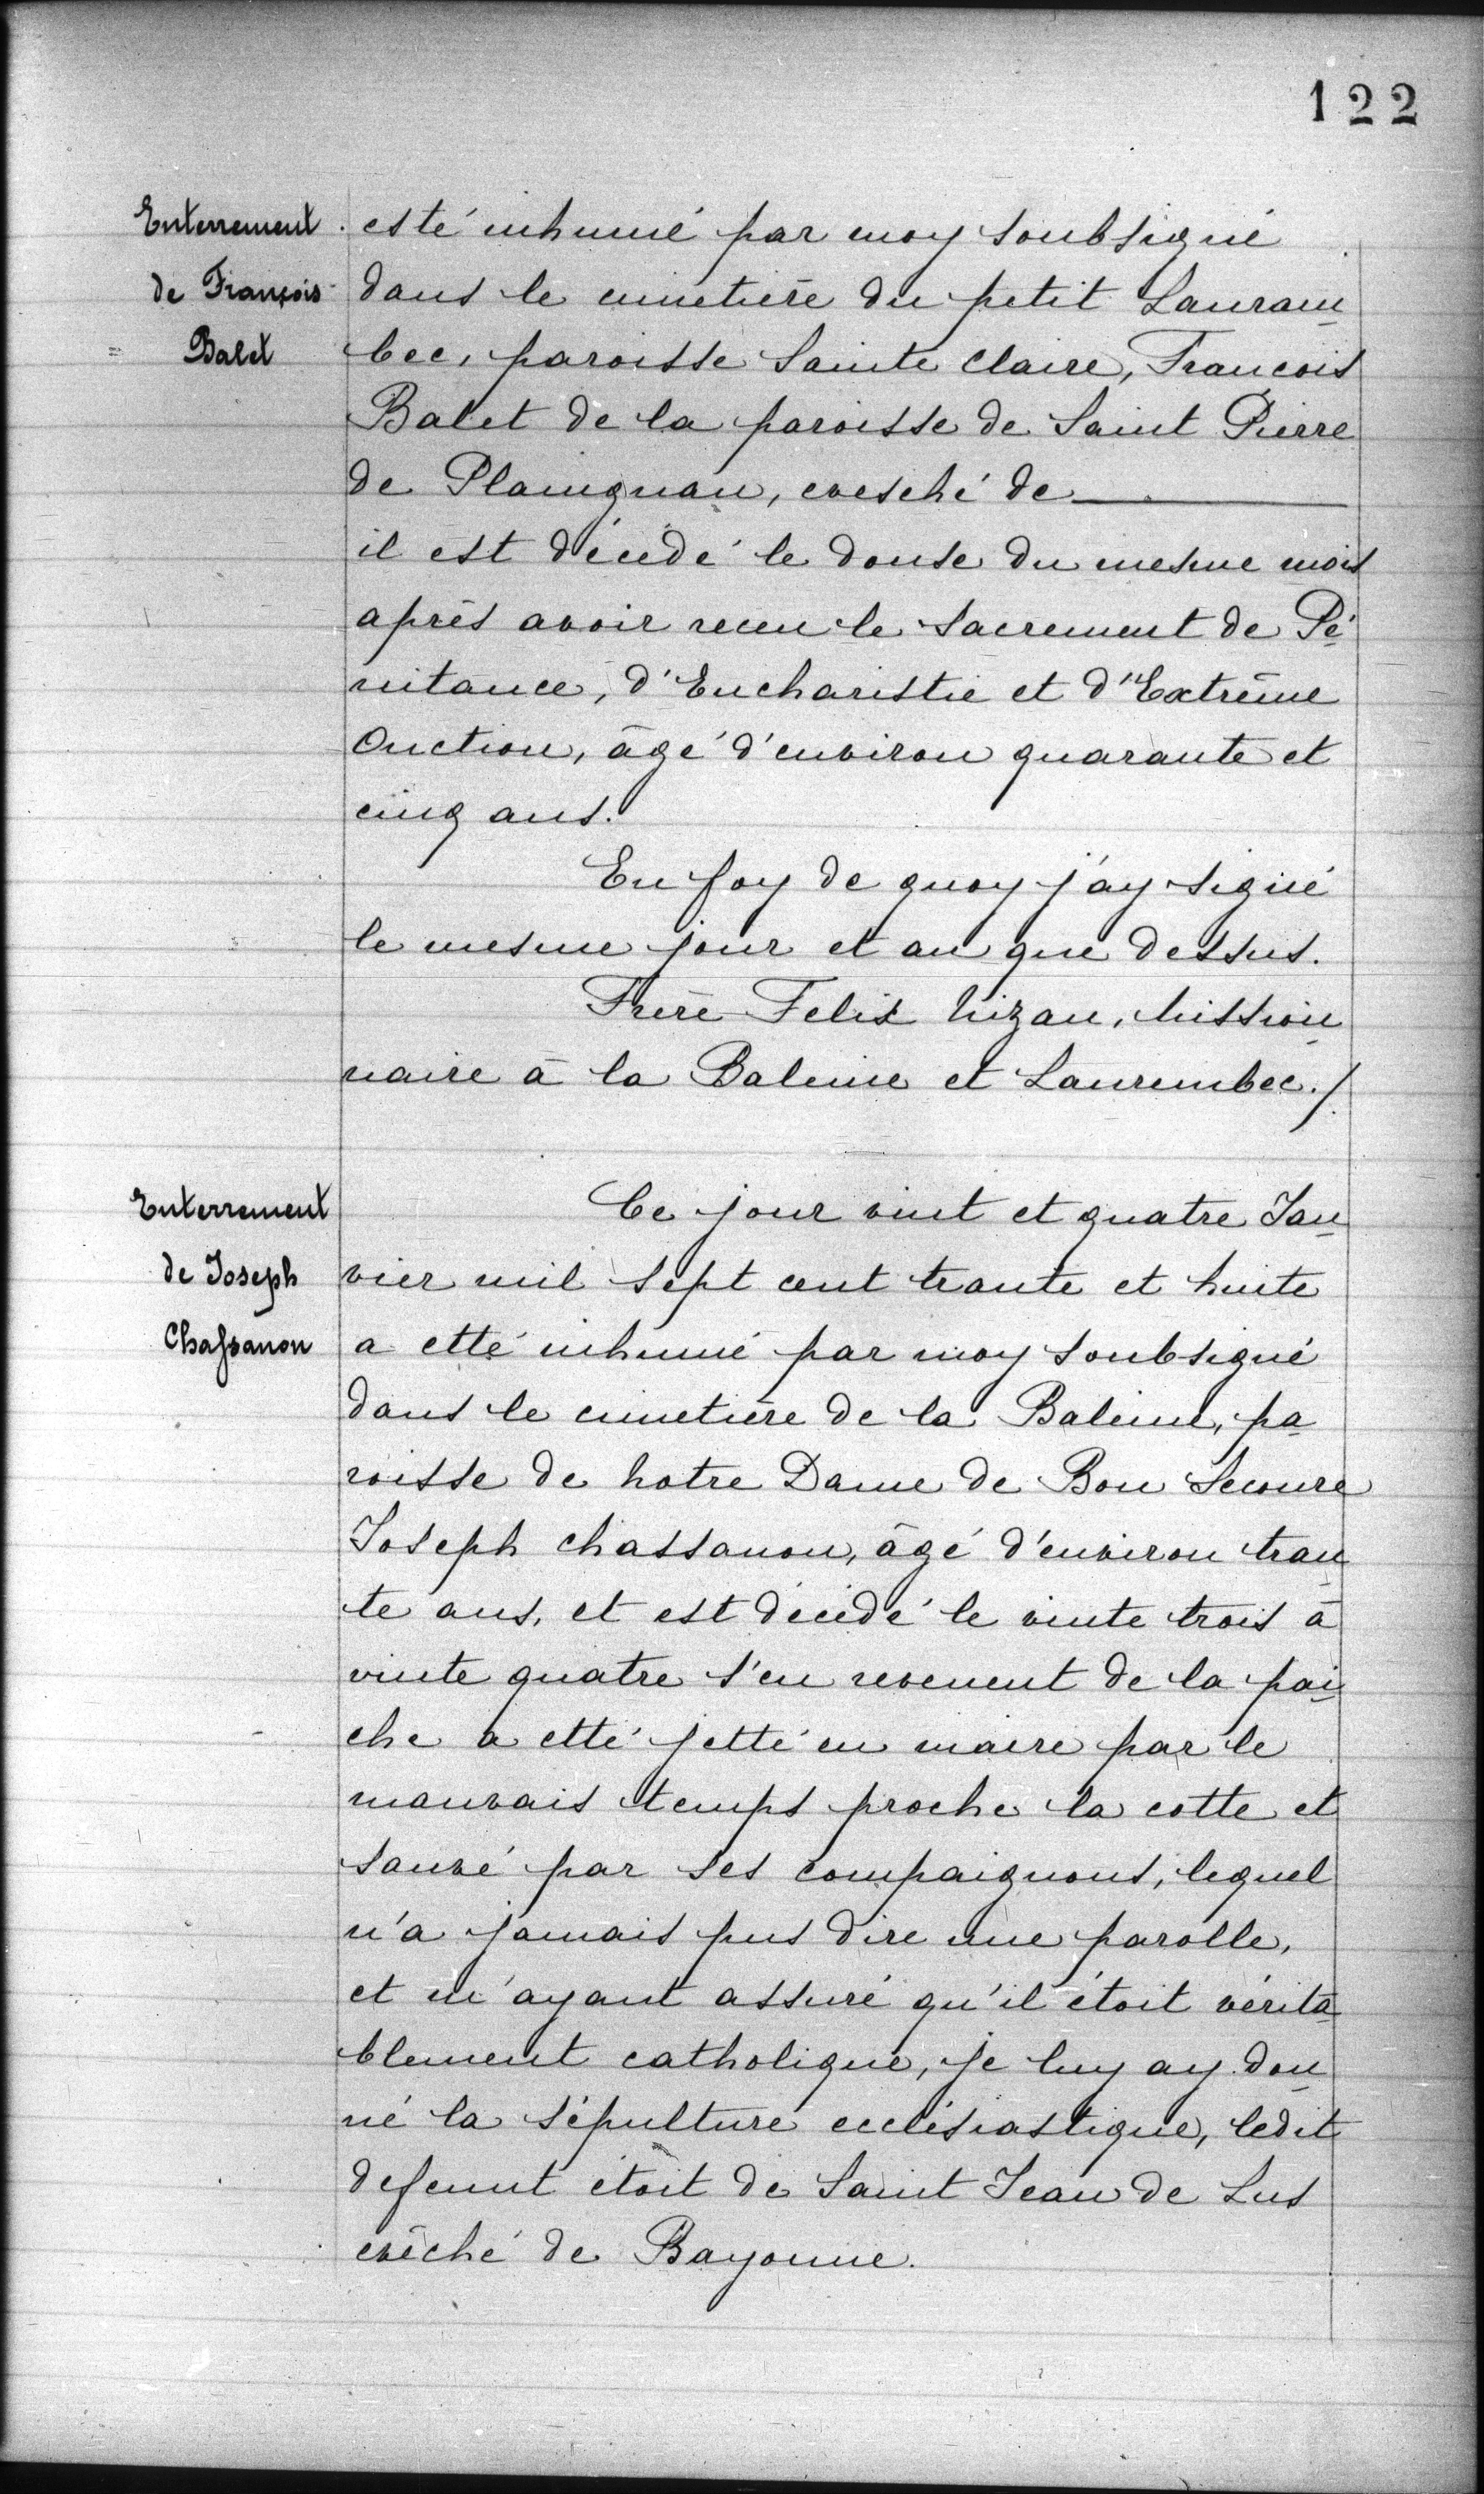 122
Enterrement
de François
Balet
esté inhumé par moy soubsigné
dans le cimetière du petit Lauram
bec, paroisse Sainte Claire, Francois
Balet de la paroisse de Saint Pierre
de Plauignan, evesché de
il est décedé le douse du mesme mois
après avoir receu le sacrement de Pé
nitance, d'Eucharistie et d'Extrême
Onction, âgé d'environ quarante et
cinq ans.
En foy de quoy j'ay signé
le mesme jour et an que dessus.
Frère Felix Nizan, Mission
naire à la Baleine et Laurembec./
Enterrement
de Joseph
Chassanon
Ce jour vint et quatre Jan
vier mil sept cent trante et huite
a etté inhumé par moy soubsigné
dans le cimetière de la Baleine, pa
roisse de Notre Dame de Bon Secoure
Joseph Chassanon, âgé d'environ tran
te ans, et est décédé le vinte trois à
vinte quatre s'en revenent de la pai
che a etté jetté en maire par le
mauvais temps proche la cotte et
sauvé par ses compaignons, lequel
n'a jamais pus dire une parolle,
et m'ayant assuré qu'il étoit vérita
blement catholique, je luy ay don
né la sépulture ecclésiastique, ledit
defunt étoit de Saint Jean de Lus
evêché de Bayonne.